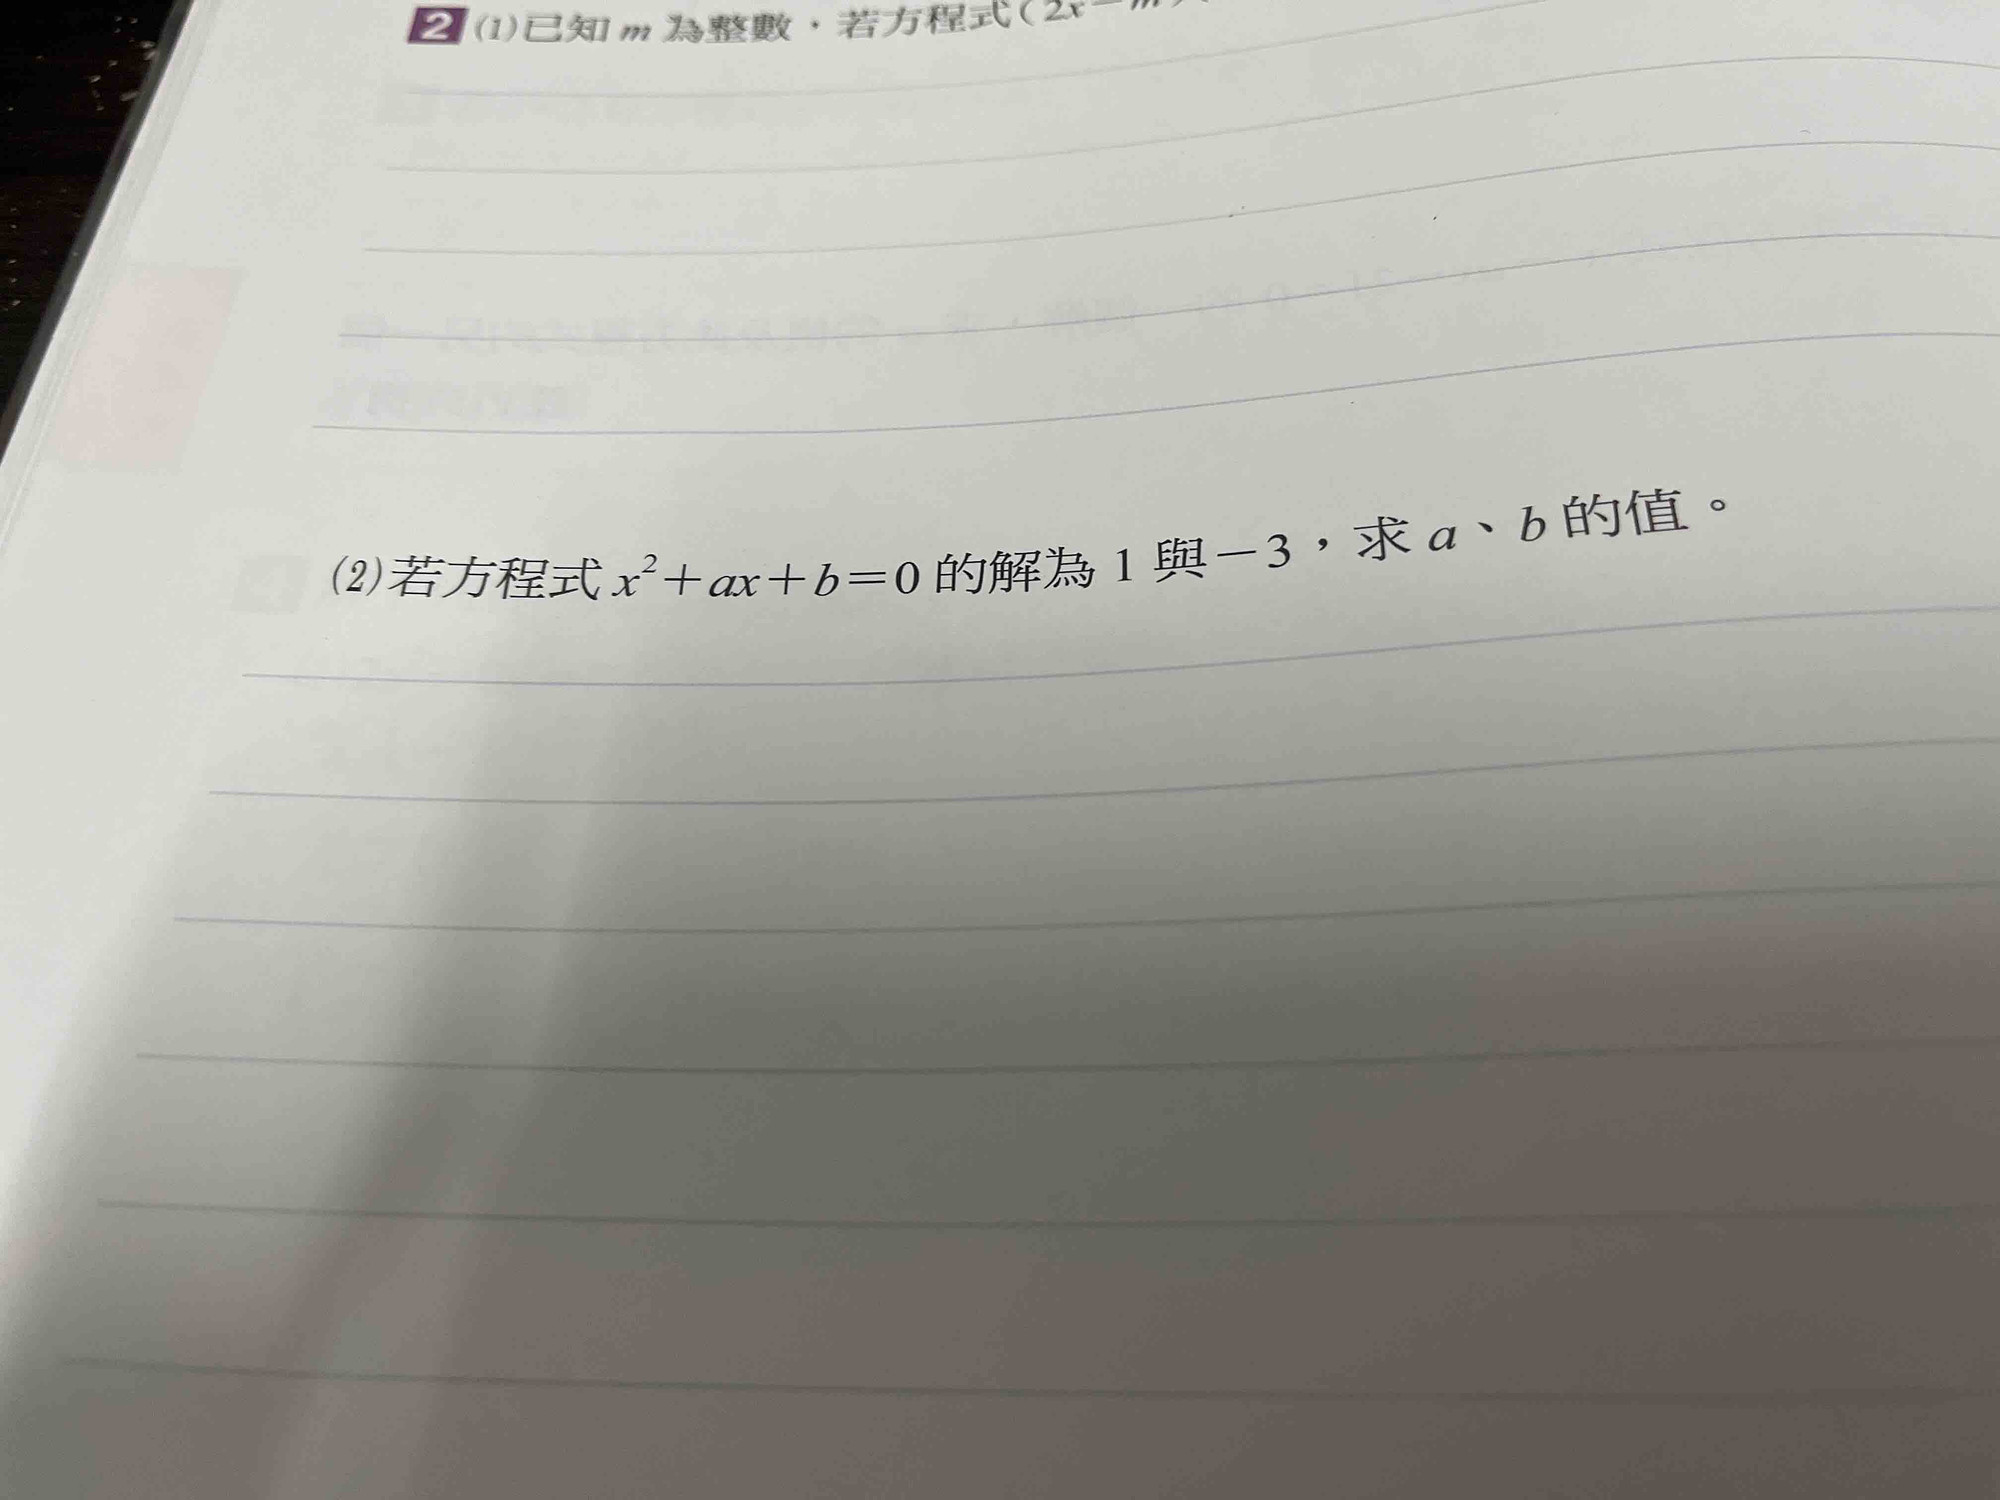 2 (1)已知 m 為整數，若方程式(2x－m
(2)若方程式 x²＋ax＋b＝0 的解為 1 與－3，求 a、b 的值。